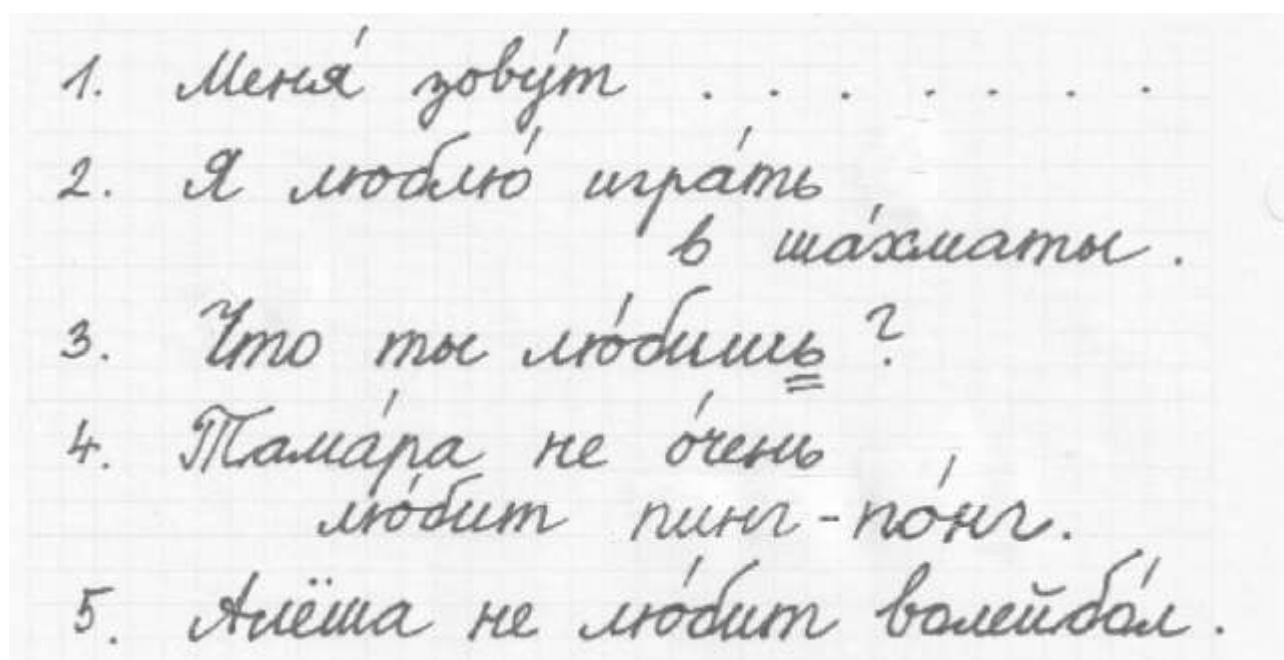 1. Меня́ зову́т . . . . . . .
2. Я люблю́ игра́ть
в ша́хматы.
3. Что ты лю́бишь?
4. Тама́ра не о́чень
лю́бит пинг-по́нг.
5. Алёша не лю́бит волейбо́л.